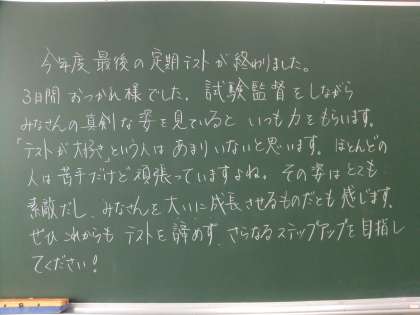 今年度最後の定期テストが終わりました。
3日間おつかれ様でした。試験監督をしながら
みなさんの真剣な姿を見ていると いつも力をもらいます。
「テストが大好き」という人は あまりいないと思います。ほとんどの
人は苦手だけど頑張っていますよね。その姿はとても
素敵だし、みなさんを大いに成長させるものだとも感じます。
ぜひ これからも テストを諦めず、さらなるステップアップを目指し
てください！